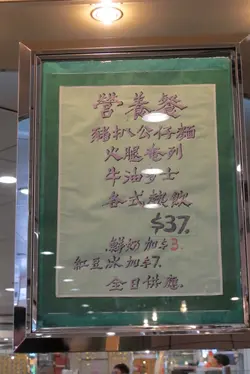 營養餐
豬扒公仔麵
火腿奄列
牛油多士
各式熱飲
$37.
鮮奶加$3.
紅豆冰加$7.
全日供應.